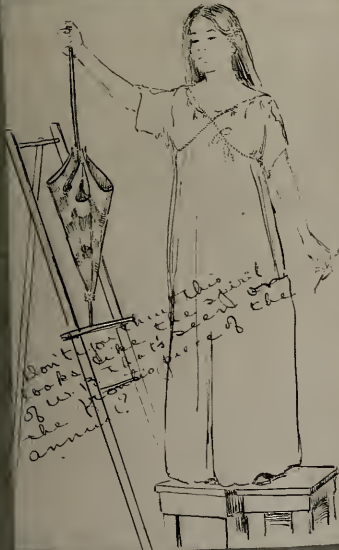 Don't you think this
looks like the spirit
of that's seen on
the frontispiece of the
annual?